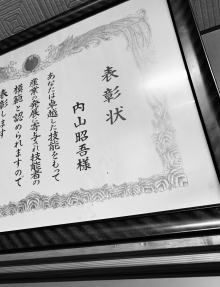 表彰状
内山昭吾様
あなたは卓越した技能をもって
産業の発展に寄与され技能者の
模範と認められますので
表彰します